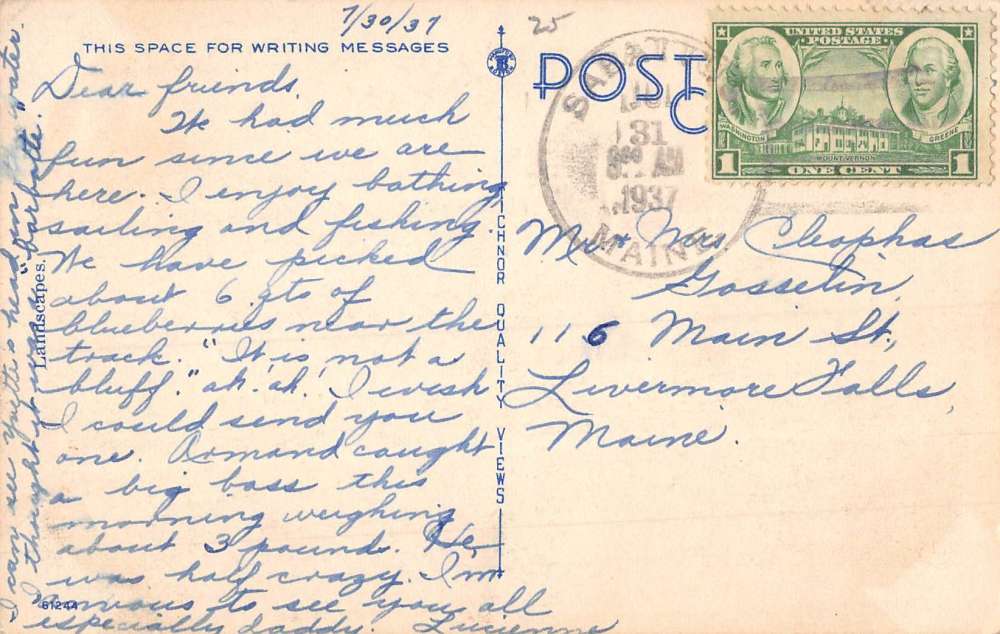 7/30/37
THIS SPACE FOR WRITING MESSAGES
Dear friends,
We had much
fun since we are
here. I enjoy bathing
sailing and fishing.
We have picked
about 6 qts of
blueberries near the
track. "It is not a
bluff." ah! ah! I wish
I could send you
one. Armand caught
a big bass this
morning weighing
about 3 pound. He
was half crazy. I'm
anxious to see you all
especially daddy. Lucienne
I can see head in water.
I thought it was a "barbotte."
Landscapes.
61244
TICHNOR QUALITY VIEWS
25
POST C
JUL
31
AM
1937
MAINE
UNITED STATES
POSTAGE
WASHINGTON
GREENE
MOUNT VERNON
1 ONE CENT 1
Mr & Mrs Cleophas
Gosselin,
116 Main St,
Livermore Falls,
Maine.